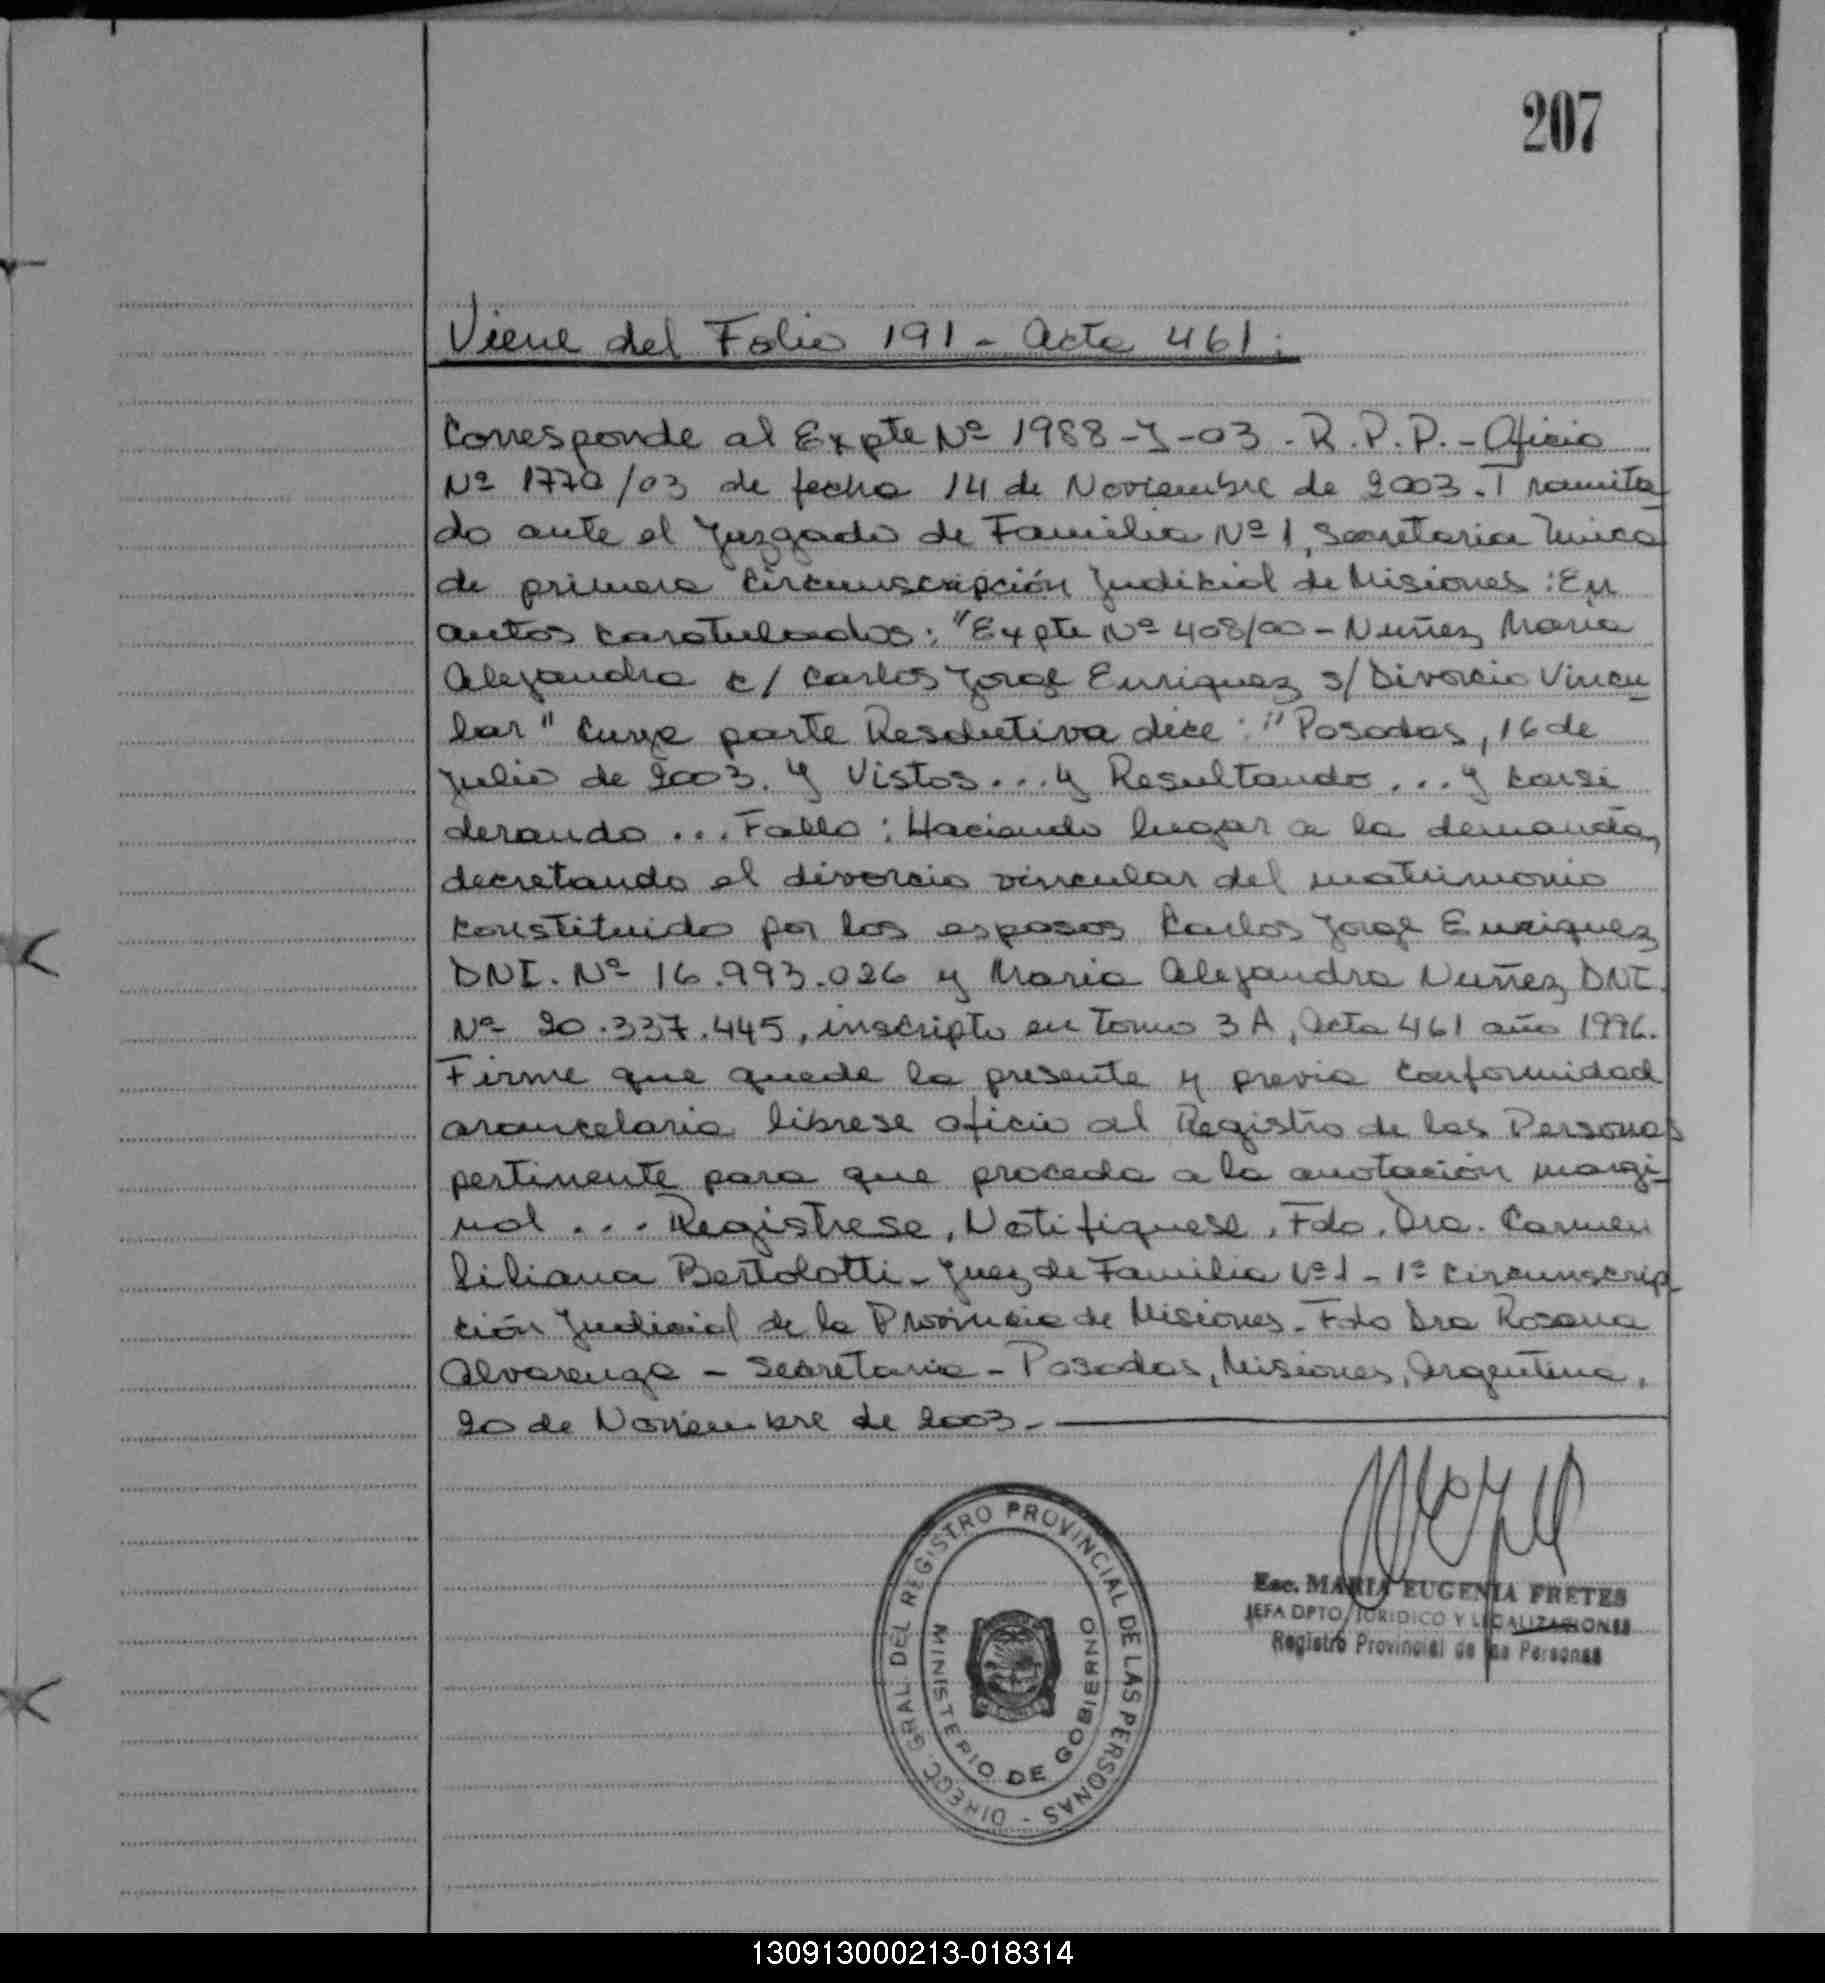 207
Viene del Folio 191 - Acta 461:
Corresponde al Expte Nº 1988-J-03.R.P.P.-Oficio
Nº 1770/03 de fecha 14 de Noviembre de 2003. Tramita
do ante el Juzgado de Familia Nº 1, Secretaria Unica
de primera Circunscripción Judicial de Misiones: En
autos caratulados: "Expte Nº 408/00 - Nuñez Maria
Alejandra c/ Carlos Jorge Enriquez s/ Divorcio Vincu
lar" Cuya parte Resolutiva dice: "Posadas, 16 de
Julio de 2003. Y Vistos... y Resultando... y consi
derando... Fallo: Haciendo lugar a la demanda,
decretando el divorcio vincular del matrimonio
constituido por los esposos Carlos Jorge Enriquez
DNI. Nº 16.993.026 y Maria Alejandra Nuñez DNI.
Nº 20.337.445, inscripto en Tomo 3A, Acta 461 año 1996.
Firme que quede la presente y previa conformidad
arancelaria librese oficio al Registro de las Personas
pertinente para que proceda a la anotación margi-
nal... Registrese, Notifiquese, Fdo. Dra. Carmen
Liliana Bertolotti - Juez de Familia Nº 1 - 1º Circunscrip
ción Judicial de la Provincia de Misiones. Fdo Dra Rosana
Alvarenga - Secretaria - Posadas, Misiones, Argentina,
20 de Noviembre de 2003.-
DIRECC. GRAL DEL REGISTRO PROVINCIAL DE LAS PERSONAS -
MINISTERIO DE GOBIERNO
Esc. MARIA EUGENIA FRETES
JEFA DPTO. JURIDICO Y LEGALIZACIONES
Registro Provincial de las Personas
130913000213-018314